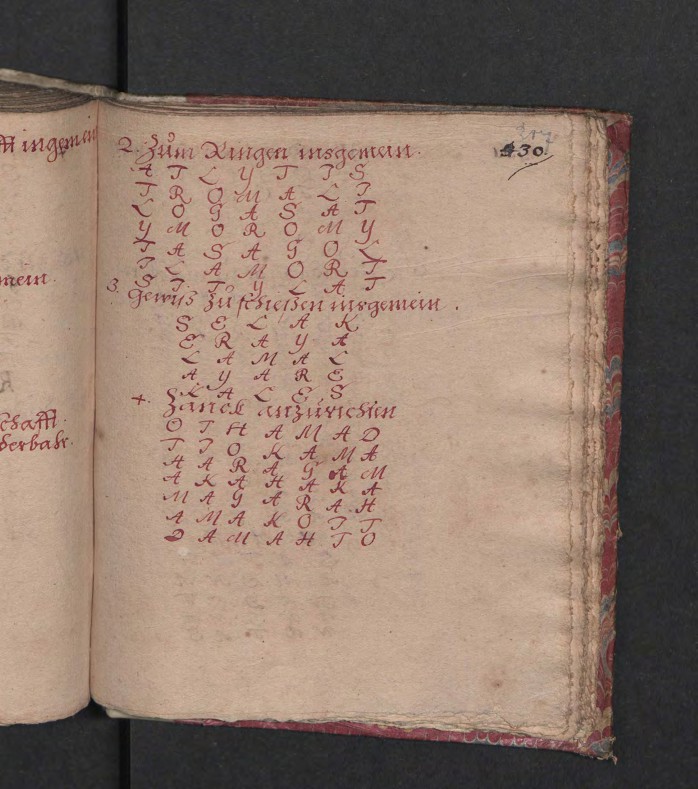 fft ingemein
mein.
schafft.
derbahr.
430.
2. Zum Ringen insgemein.
A T L Y T I S
T R O M A L I
L O G A S A T
Y M O R O M Y
T A S A G O L
I L A M O R T
S I T Y L A T
3. Gewiß zu schießen insgemein.
S E L A K
E R A Y A
L A M A L
A Y A R E
K A L E S
4. Zanck anzurichten
O T H A M A D
T I O K A M A
H A R A G A M
A K A H A K A
M A G A R A H
A M A K O I T
D A M A H T O